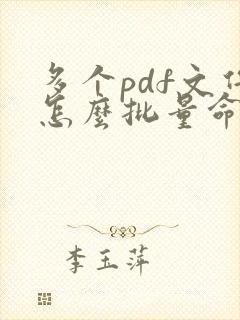 多个pdf文件
怎麼批量命
李玉萍